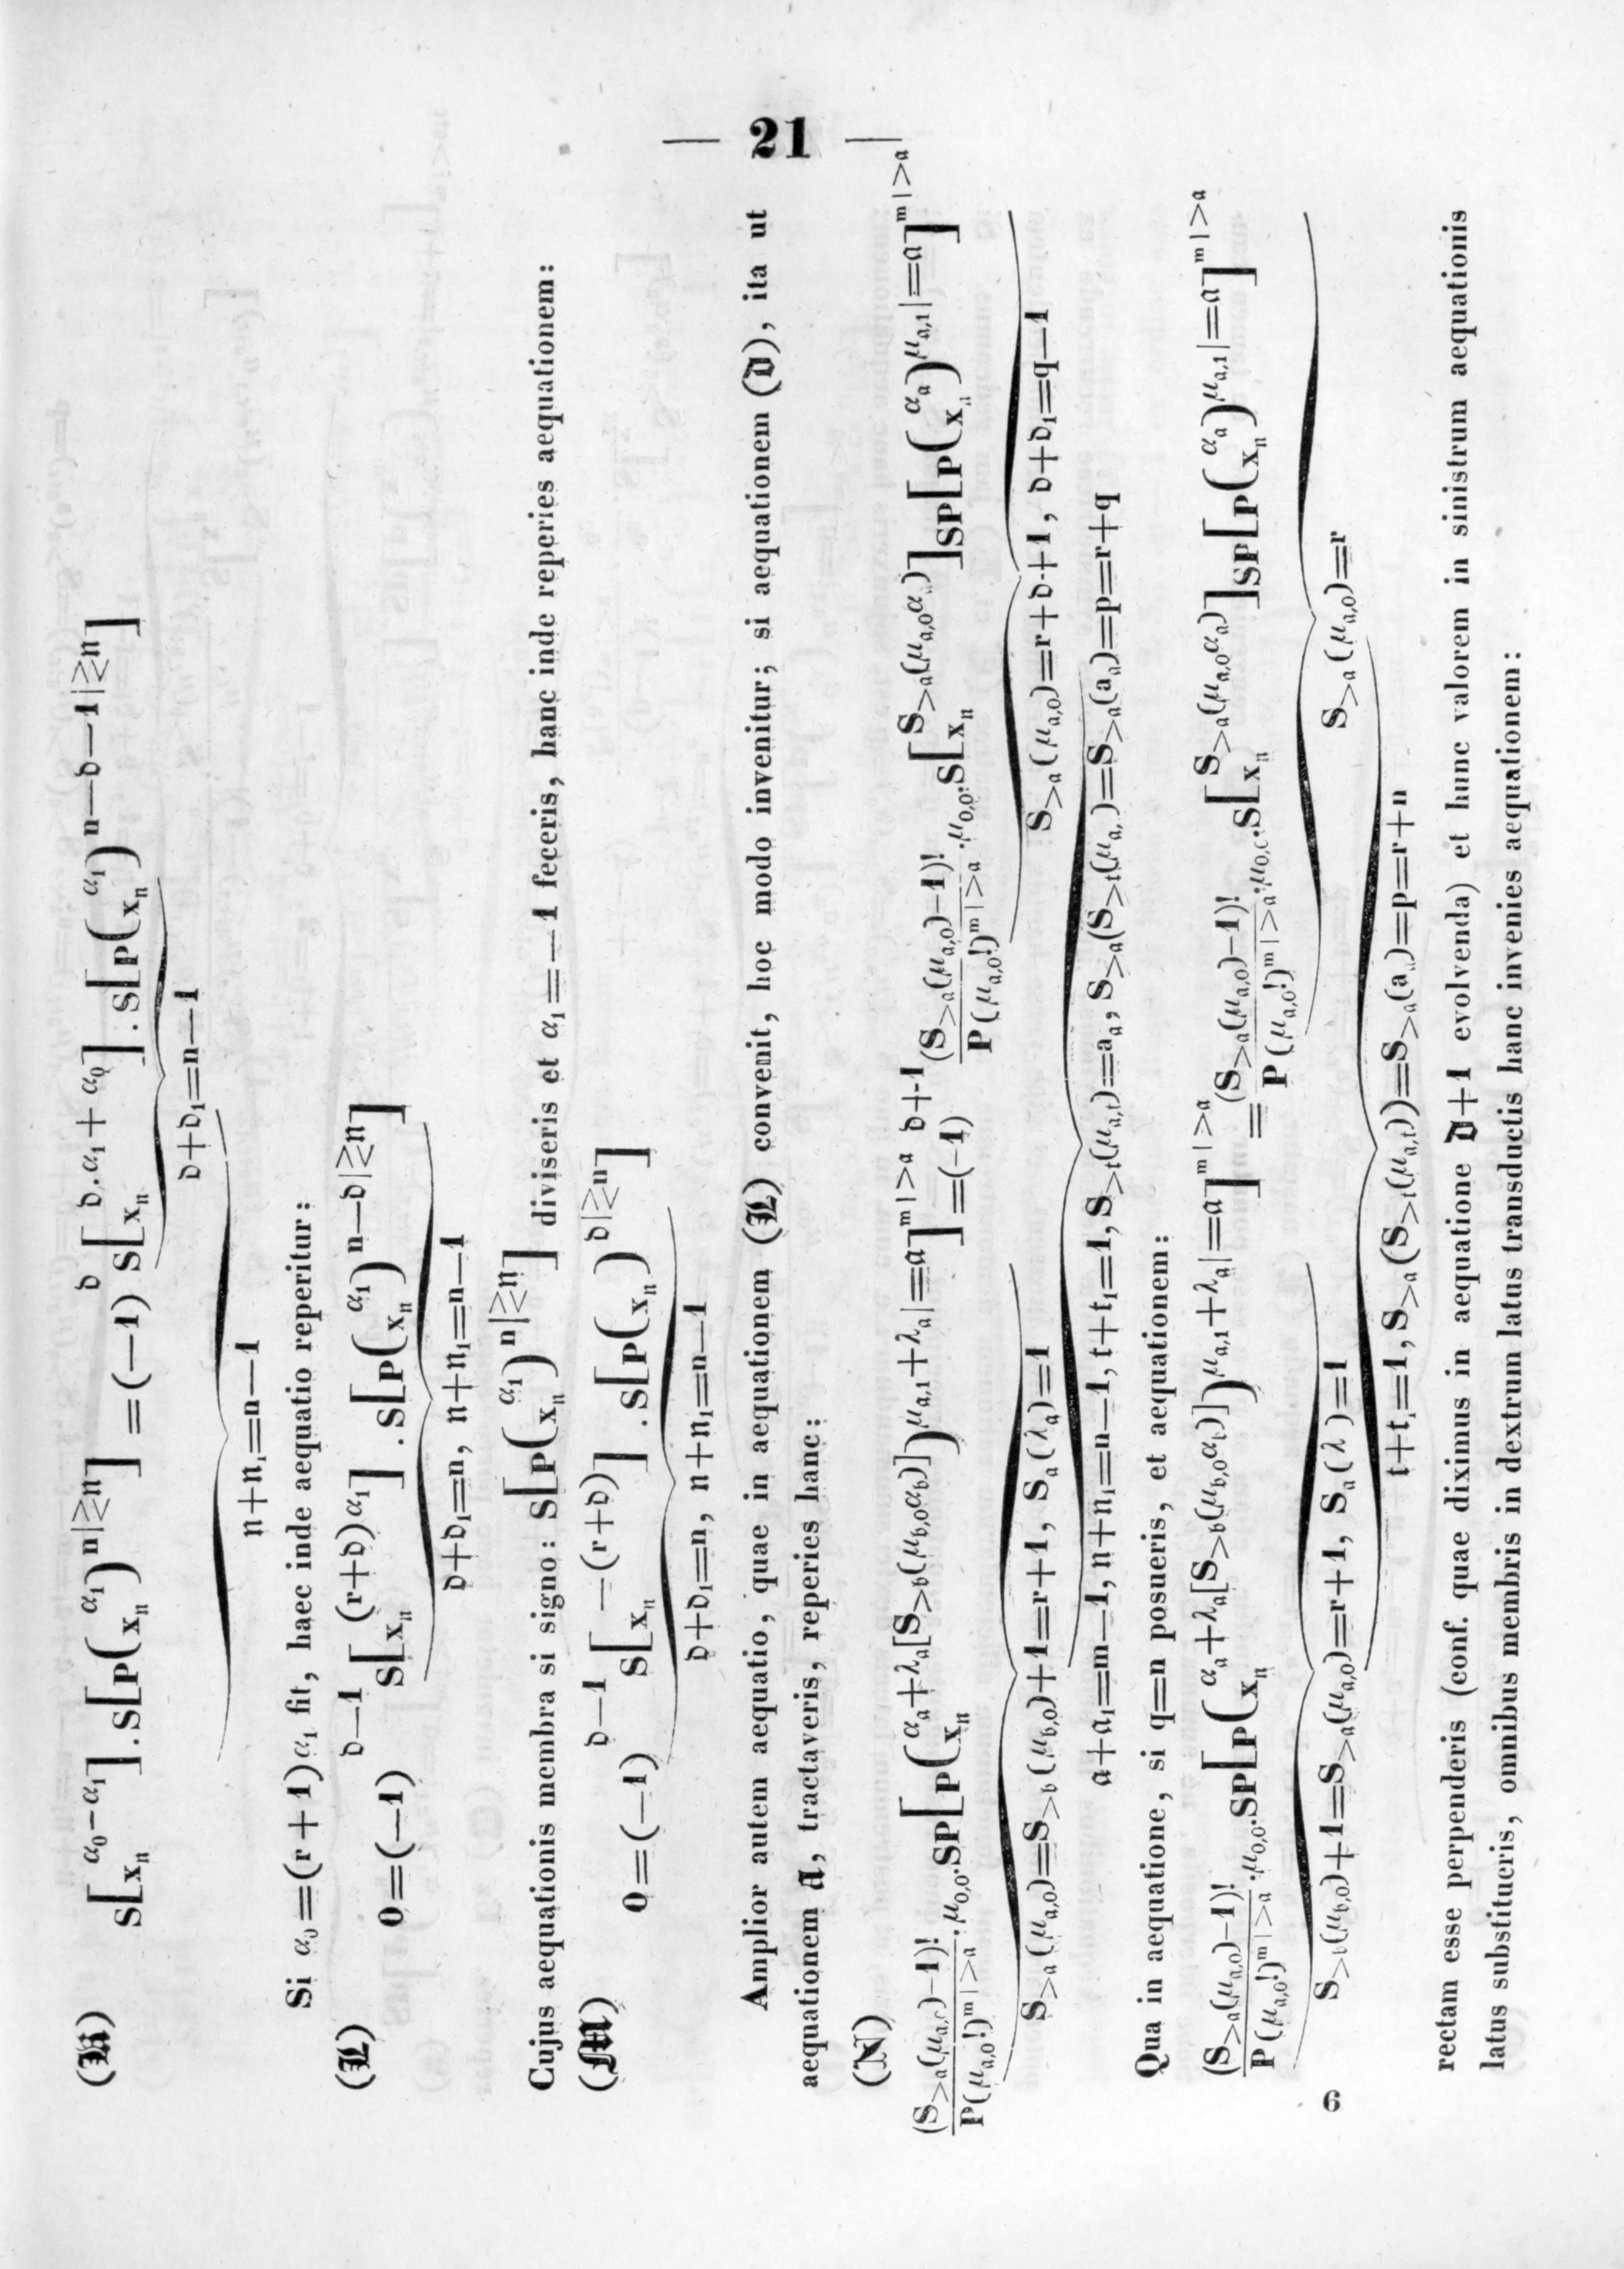 — 21 —
(𝕶) S[x_𝔫^{α₀−α₁}].S[P(x_𝔫^{α₁})^{n|≥𝔫}] = (−1)^𝔡 S[x_𝔫^{𝔡.α₁+α₀}].S[P(x_𝔫^{α₁})^{n−𝔡−1|≥𝔫}]
𝔡+𝔡₁=n−1
𝔫+𝔫₁=n−1
Si α₀=(r+1)α₁ fit, haec inde aequatio reperitur:
(𝕷) 0=(−1)^{𝔡−1} S[x_𝔫^{(r+𝔡)α₁}].S[P(x_𝔫^{α₁})^{n−𝔡|≥𝔫}]
𝔡+𝔡₁=n, 𝔫+𝔫₁=n−1
Cujus aequationis membra si signo: S[P(x_𝔫^{α₁})^{n|≥𝔫}] diviseris et α₁=−1 feceris, hanc inde reperies aequationem:
(𝕸) 0=(−1)^{𝔡−1} S[x_𝔫^{−(r+𝔡)}].S[P(x_𝔫)^{𝔡|≥𝔫}]
𝔡+𝔡₁=n, 𝔫+𝔫₁=n−1
Amplior autem aequatio, quae in aequationem (𝕷) convenit, hoc modo invenitur; si aequationem (𝕯), ita ut
aequationem 𝕬, tractaveris, reperies hanc:
(𝕹)
(S_{>𝔞}(μ_{𝔞,0})−1)!/P(μ_{𝔞,0}!)^{m|>𝔞}.μ_{0,0}.SP[P(x_𝔫^{α_𝔞+λ_𝔞[S_{>𝔟}(μ_{𝔟,0}α_𝔟)]})^{μ_{𝔞,1}+λ_𝔞|=𝔞}]^{m|>𝔞}=(−1)^{𝔡+1} (S_{>𝔞}(μ_{𝔞,0})−1)!/P(μ_{𝔞,0}!)^{m|>𝔞}.μ_{0,0}.S[x_𝔫^{S_{>𝔞}(μ_{𝔞,0}α_𝔞)}]SP[P(x_𝔫^{α_𝔞})^{μ_{𝔞,1}|=𝔞}]^{m|>𝔞}
S_{>𝔞}(μ_{𝔞,0})=S_{>𝔟}(μ_{𝔟,0})+1=r+1, S_𝔞(λ_𝔞)=1 S_{>𝔞}(μ_{𝔞,0})=r+𝔡+1, 𝔡+𝔡₁=q−1
𝔞+𝔞₁=m−1, 𝔫+𝔫₁=n−1, 𝔱+𝔱₁=1, S_{>𝔱}(μ_{𝔞,𝔱})=a_𝔞, S_{>𝔞}(S_{>𝔱}(μ_{𝔞,})=S_{>𝔞}(a_𝔞)=p=r+q
Qua in aequatione, si q=n posueris, et aequationem:
(S_{>𝔞}(μ_{𝔞,0})−1)!/P(μ_{𝔞,0}!)^{m|>𝔞}.μ_{0,0}.SP[P(x_𝔫^{α_𝔞+λ_𝔞[S_{>𝔟}(μ_{𝔟,0}α_𝔟)]})^{μ_{𝔞,1}+λ_𝔞|=𝔞}]^{m|>𝔞}=(S_{>𝔞}(μ_{𝔞,0})−1)!/P(μ_{𝔞,0}!)^{m|>𝔞}.μ_{0,0}.S[x_𝔫^{S_{>𝔞}(μ_{𝔞,0}α_𝔞)}]SP[P(x_𝔫^{α_𝔞})^{μ_{𝔞,1}|=𝔞}]^{m|>𝔞}
S_{>𝔟}(μ_{𝔟,0})+1=S_{>𝔞}(μ_{𝔞,0})=r+1, S_𝔞(λ )=1 S_{>𝔞}(μ_{𝔞,0})=r
𝔱+𝔱₁=1, S_{>𝔞}(S_{>𝔱}(μ_{𝔞,𝔱}))=S_{>𝔞}(a_𝔞)=p=r+n
rectam esse perpenderis (conf. quae diximus in aequatione 𝕯+1 evolvenda) et hunc valorem in sinistrum aequationis
latus substitueris, omnibus membris in dextrum latus transductis hanc invenies aequationem:
6